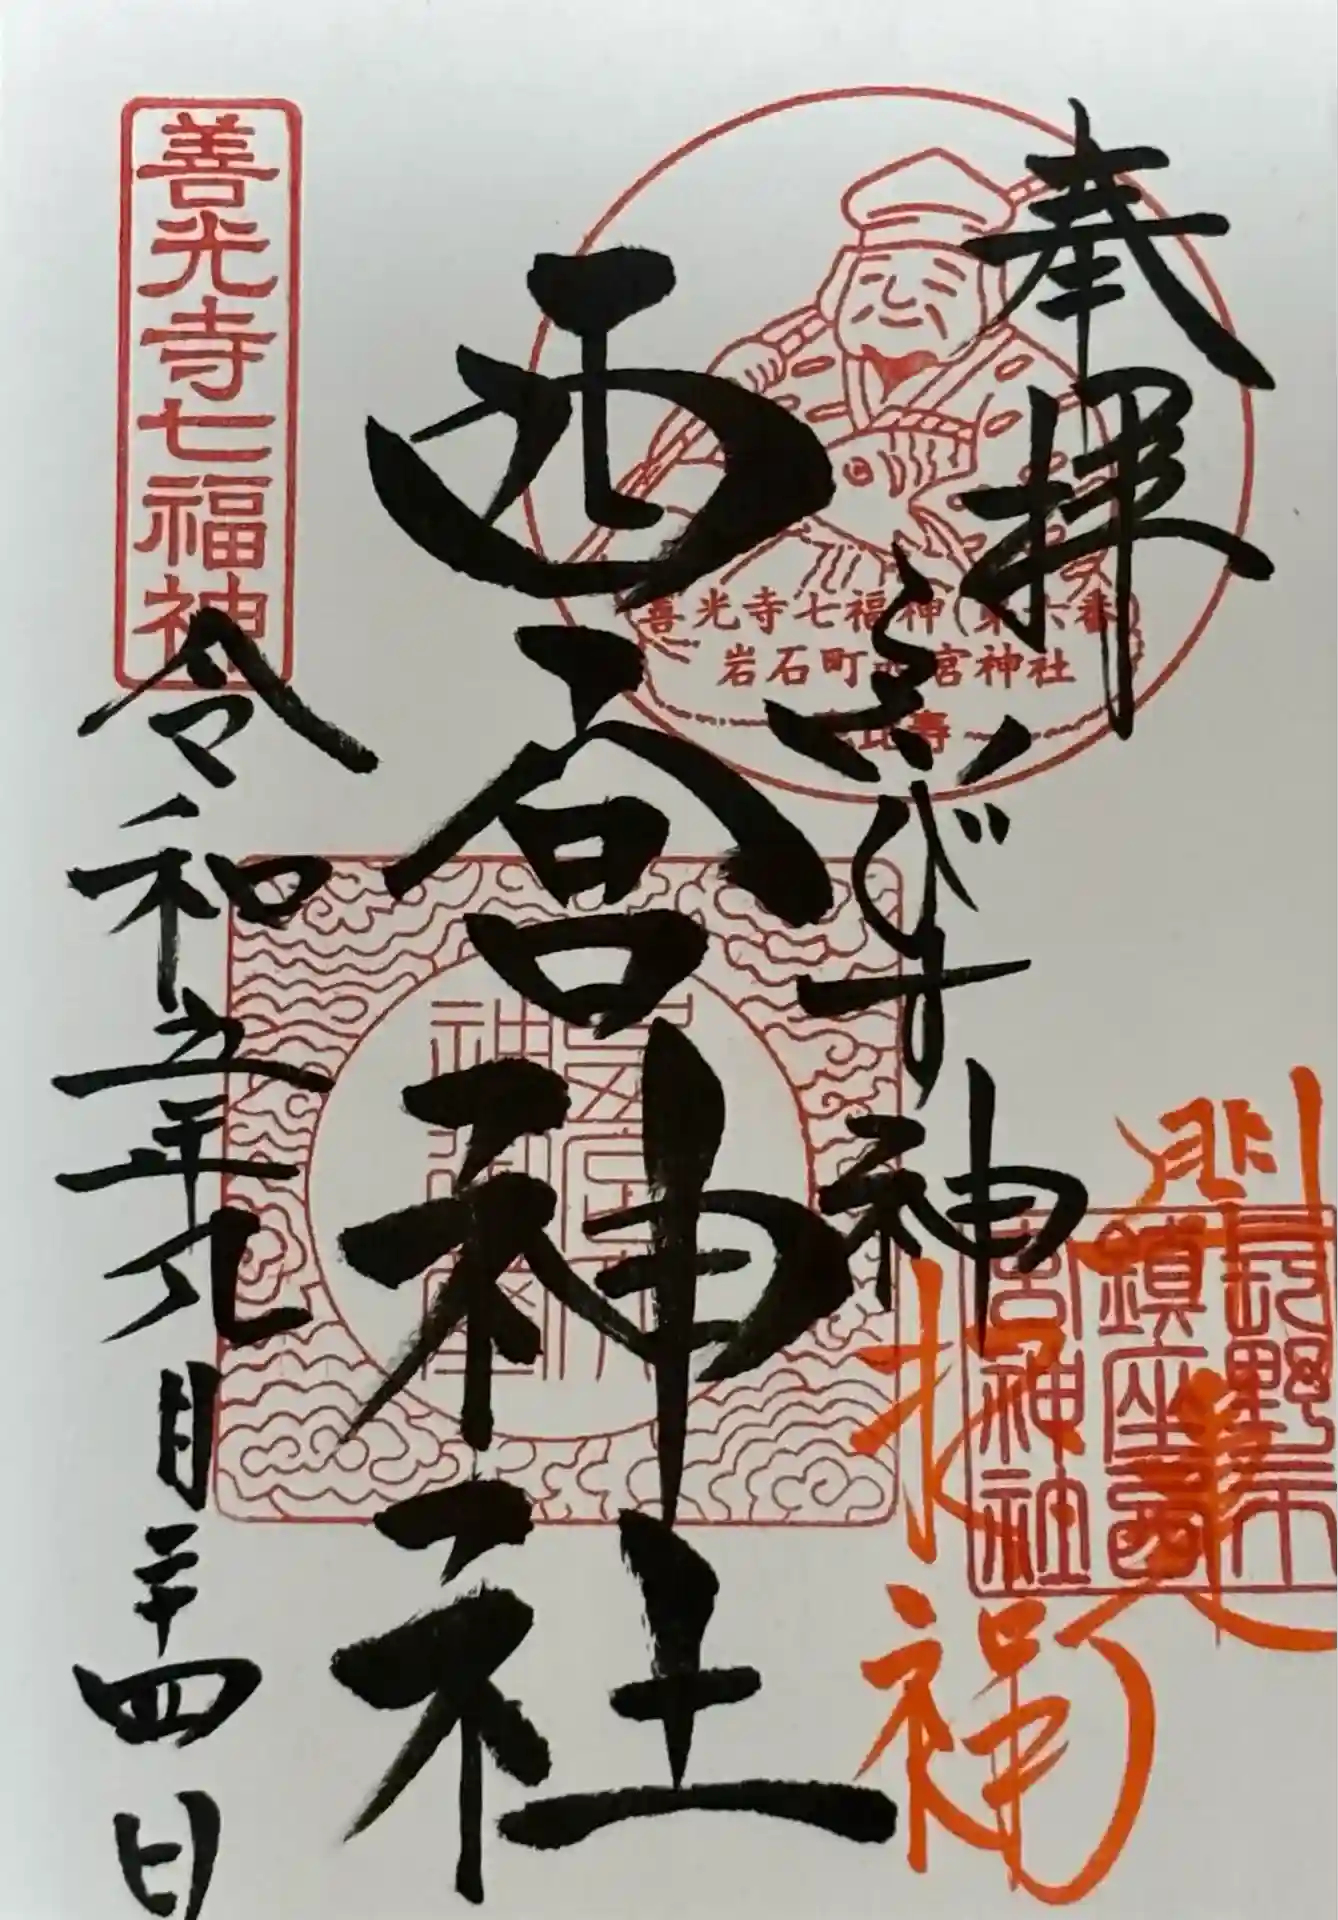 奉拝
ゑびす神
西宮神社
令和五年九月二十四日
善光寺七福神
善光寺七福神(第六番)
岩石町西宮神社
恵比寿
開運
招福
長野市
鎮座西
宮神社